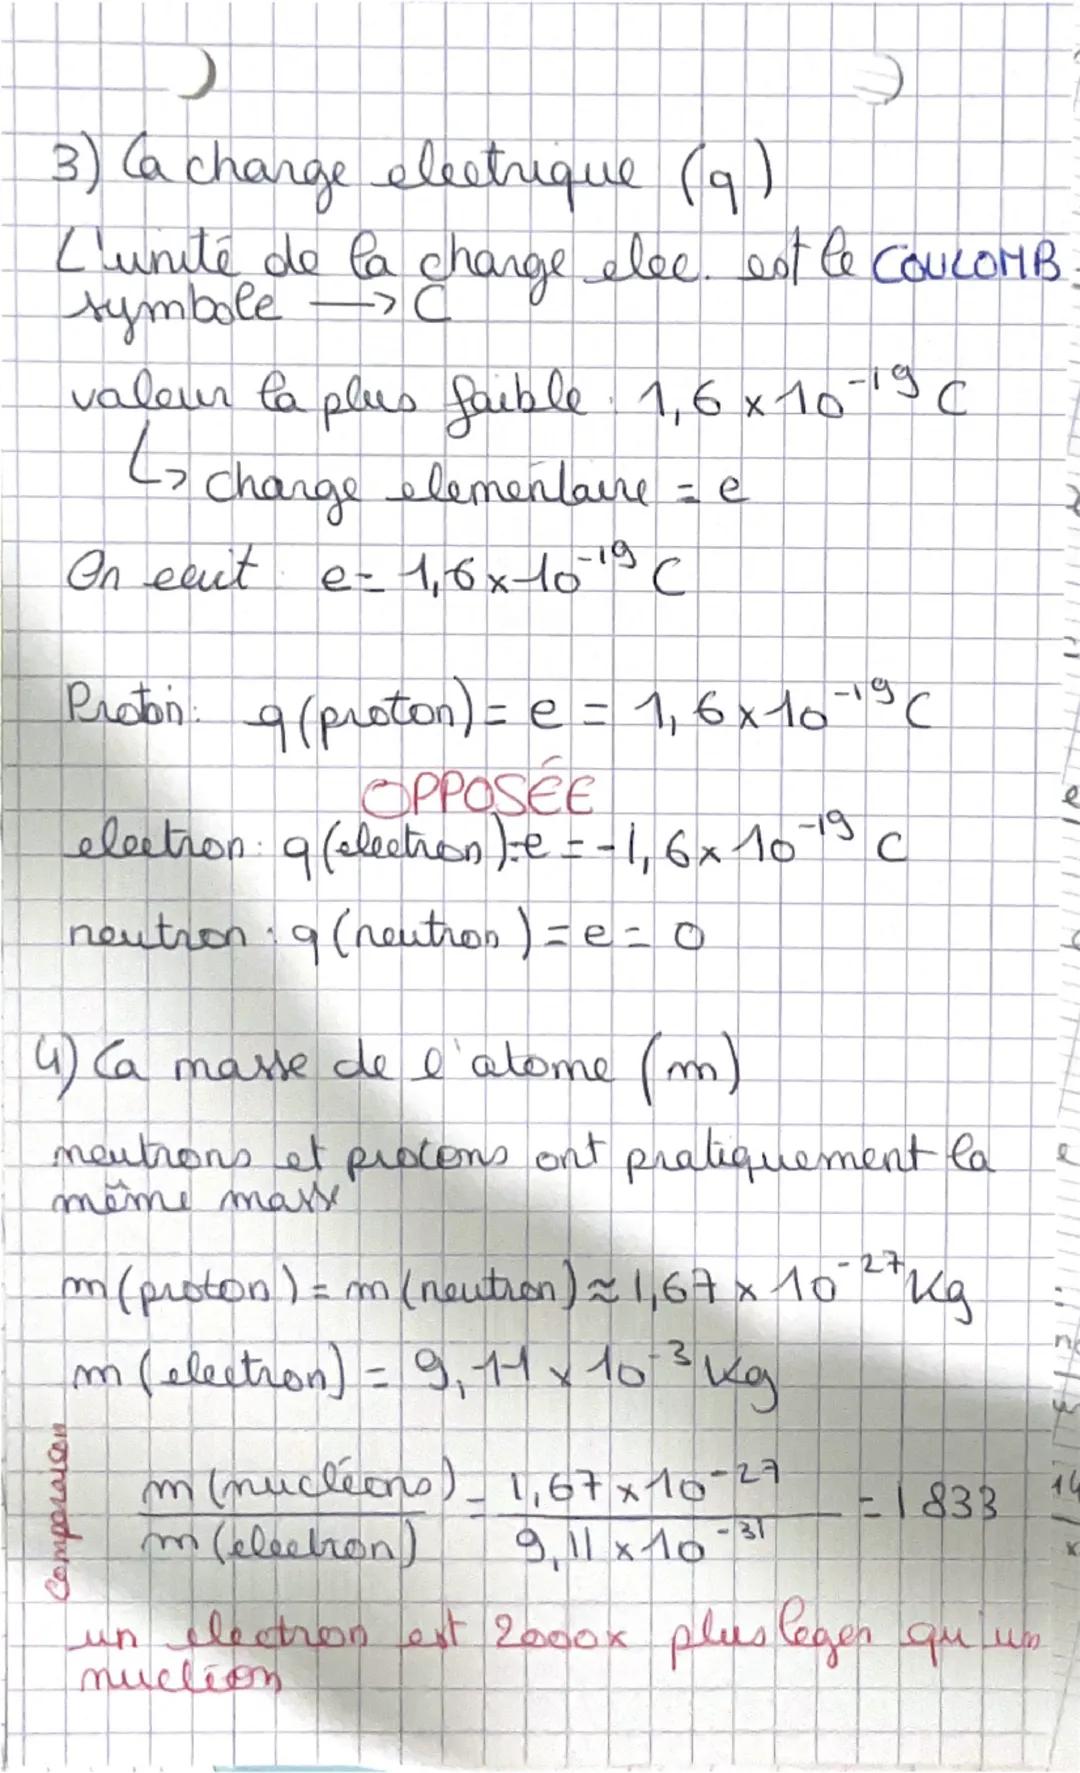 3) La charge electrique (q)
L'unité de la charge elec. est le COULOMB.
symbole → C
valeur la plus faible : 1,6 × 10⁻¹⁹ C
↳ charge elementaire = e
On ecrit e = 1,6 × 10⁻¹⁹ C
Proton : q (proton) = e = 1,6 × 10⁻¹⁹ C
OPPOSÉE
electron : q (electron) = -e = -1,6 × 10⁻¹⁹ C
neutron : q (neutron) = e = 0
4) La masse de l'atome (m)
neutrons et protons ont pratiquement la
même masse
m (proton) = m (neutron) ≈ 1,67 × 10⁻²⁷ Kg
m (electron) = 9,11 × 10⁻³ Kg
Comparaison
m (nucléons) / m (electron) = 1,67 × 10⁻²⁷ / 9,11 × 10⁻³¹ = 1833
un electron est 2000x plus leger qu'un
nucléon